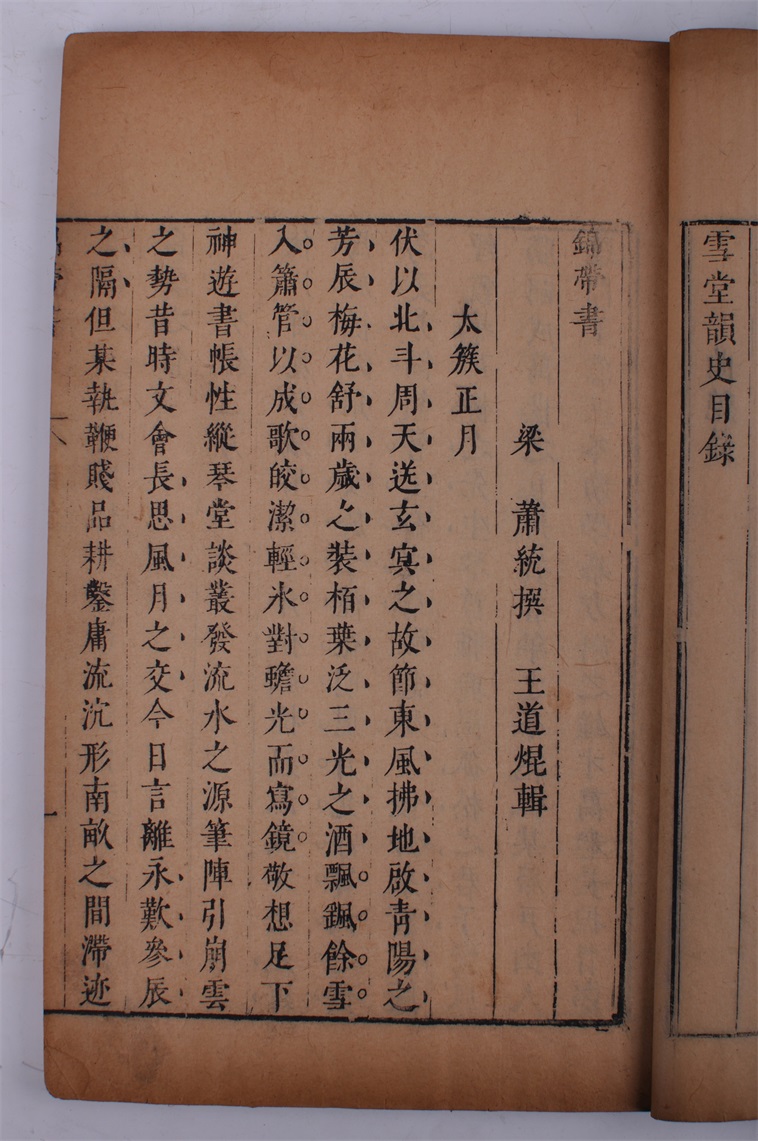 雪堂韻史目錄
錦帶書
梁 蕭統撰 王道焜輯
太簇正月
伏以北斗周天送玄冥之故節東風拂地啟青陽之
芳辰梅花舒兩歲之裝栢葉泛三光之酒飄颻餘雪
入簫管以成歌皎潔輕氷對蟾光而寫鏡敬想足下
神遊書帳性縱琴堂談叢發流水之源筆陣引崩雲
之勢昔時文會長思風月之交今日言離永歎參辰
之隔但某執鞭賤品耕鑿庸流沉形南畝之間滯迹